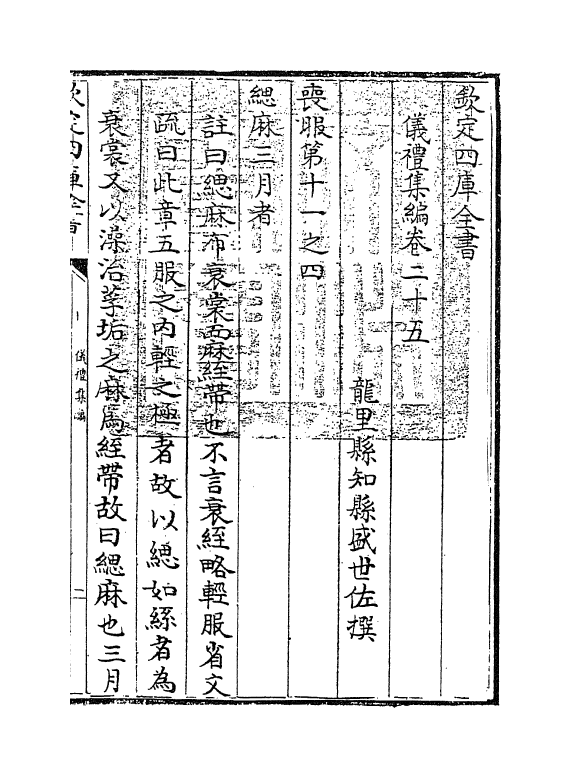 欽定四庫全書
儀禮集編卷二十五
龍里縣知縣盛世佐撰
喪服第十一之四
緦麻三月者
註曰緦麻布衰裳而麻絰帶也不言衰絰略輕服省文
疏曰此章五服之内輕之極者故以緦如絲者為
衰裳又以澡治莩垢之麻為絰帶故曰緦麻也三月
欽定四庫全書
儀禮集編
二